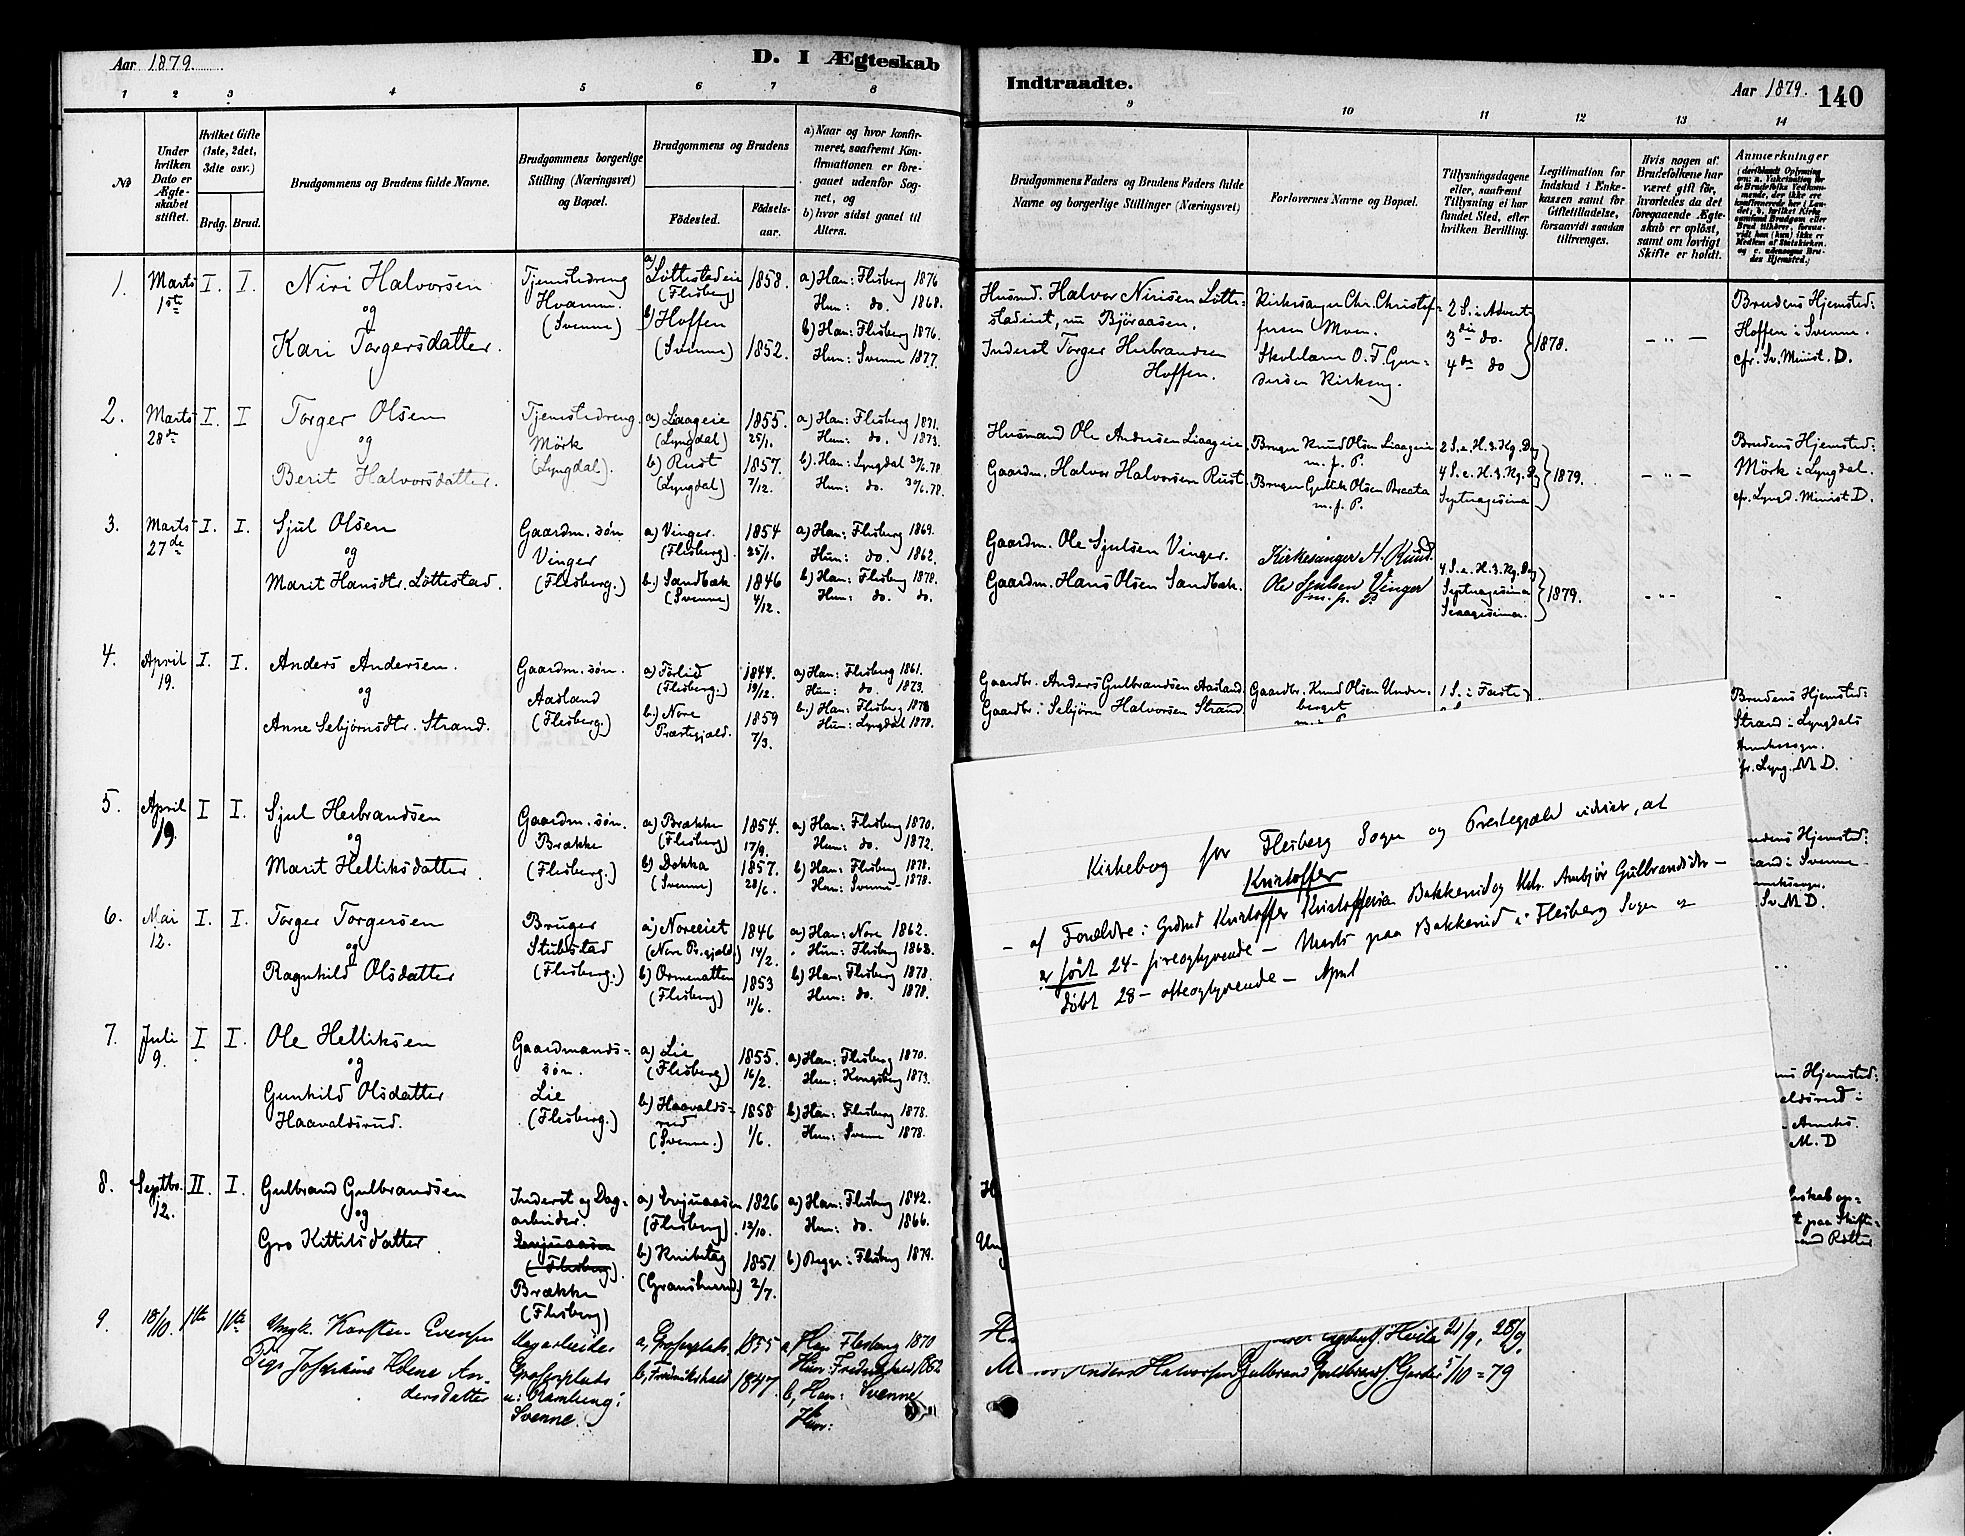 Aar 1879.
D. I Ægteskab
1 2 3 4 5 6 7 8
№
Under hvilken Dato er Ægteskabet stiftet.
Hvilket Gifte (1ste, 2det, 3die osv.)
Brdg. Brud.
Brudgommens og Brudens fulde Navne.
Brudgommens borgerlige Stilling (Næringsvei) og Bopæl.
Brudgommens og Brudens
Födested.
Födsels-aar.
a) Naar og hvor konfirmeret, saafremt Konfirmationen er foregaaet udenfor Sognet, og
b) hvor sidst gaaet til Alters.
1. Marts 1ste I. I.
Niri Halvorsen
og
Kari Torgersdatter.
Tjenestedreng
Hvamm.
(Svenne)
a) Løttestadeie
(Flesberg)
b) Hoffen
(Svenne)
1858.
1852.
a) Han: Flesberg 1876
Hun: do. 1868.
b) Han: Flesberg 1876.
Hun: Svenne 1877.
2. Marts 28de I. I
Torger Olsen
og
Berit Halvorsdatter.
Tjenestedreng.
Mörk
(Lyngdal).
a) Liaageie
(Lyngdal)
b) Rust
(Lyngdal)
1855.
25/1.
1857.
7/12.
a) Han: Flesberg 1871.
Hun: do. 1873.
b). Han: Lyngdal 30/6.78.
Hun: do. 30/6.78.
3. Marts 27de I. I.
Sjul Olsen
og
Marit Hansdtr. Löttestad.
Gaardm. sön
Vinger
(Flesberg.)
a) Vinger.
(Flesberg).
b.) Sandbæk
(Svenne)
1854
25/1.
1846
4/12.
a) Han: Flesberg 1869.
Hun: do. 1862.
b) Han: Flesberg 1878.
Hun: do. do.
4. April 19. I. I.
Anders Andersen.
og
Anne Sebjørnsdtr. Strand.
Gaardm. søn.
Aasland
(Flesberg.)
a) Förlid
(Flesberg.)
b.) Nore
Præstegjæld.
1844.
19/12.
1859
7/3.
a) Han: Flesberg 1861.
Hun: do. 1873.
b.) Han: Flesberg 1878
Hun: Lyngdal 1878.
5. April 19. I I.
Sjul Herbrandsen
og
Marit Helliksdatter.
Gaardm. søn.
Brække
(Flesberg.)
a) Brække
(Flesberg)
b) Dokka
(Svenne)
1854.
17/9.
1857.
28/6.
a) Han: Flesberg 1870.
Hun: do. 1872.
b) Han: Flesberg 1878.
Hun: Svenne 1878.
6. Mai 12. I. I.
Torger Torgersen
og
Ragnhild Olsdatter
Bruger
Stubstad
(Flesberg.)
a) Noreeiet
(Nore Pr.gjæld)
b) Ormenatten
(Flesberg)
1846
14/2.
1853
11/6.
a) Han: Nore 1862.
Hun: Flesberg 1868.
b) Han: Flesberg 1878.
Hun: do. 1878.
7. Juli 9. I I.
Ole Helliksen
og
Gunhild Olsdatter
Haavaldsrud.
Gaardmands-
søn.
Lie
(Flesberg.)
a) Lie
(Flesberg)
b) Haavalds-
rud
(Svenne.)
1855.
16/2.
1858
1/6.
a) Han: Flesberg 1870.
Hun: Kongsberg 1873.
b) Han: Flesberg 1878.
Hun: Svenne 1878.
8. Septbr. 12. II. I.
Gulbrand Gulbrandsen
og
Gro Kittilsdatter.
Inderst og Dag-
arbeider.
(Flesberg).
Brække
(Flesberg)
(Flesberg)
(Gransherred)
1826
12/10.
1851.
2/7.
a) Han: Flesberg 1842.
Hun: do. 1866.
b) Begge: Flesberg 1879.
9. 18/10. 1ste 1ste
Ungk. Karsten Evensen
Pige Josephine Helene An-
dersdatter
b, Fredrikshald
1855
1847.
a, Han Flesberg 1870
Hun: Fredrikshald 1862
b, Han: Svenne
Hun:
Svenne.
Indtraadte.
Aar 1879. 140
9 10 11 12 13 14
Brudgommens Faders og Brudens Faders fulde Navne og borgerlige Stillinger (Næringsvei)
Forlovernes Navne og Bopæl.
Tillysningsdagene eller, saafremt Tillysning ei har fundet Sted, efter hvilken Bevilling.
Legitimation for Indskud i Enkekassen samt for Giftetilladelse, forsaavidt saadan tiltrænges.
Hvis nogen af Brudefolkene har været gift før, hvorledes da det foregaaende Ægteskab er oplöst, samt om lovligt Skifte er holdt.
Anmærkninger
Husmd. Halvor Nirisen Løtte-
stadeiet, nu Björaasen.
Inderst Torger Herbrandsen
Hoffen.
Kirkesanger Chr. Christof-
fersen Moen.
Skolelærer O. T. Gun-
dersen Kirkeng.
2 S. i Advent
3die do.
4de do
1878.
Brudens Hjemsted:
Hoffen i Svenne.
cfr. Sv. Minist. D.
Husmand Ole Andersen Liaageie
Gaardm. Halvor Halvorsen Rust.
Bruger Knud Olsen Liaageie
m. f. P.
Bruger Gullik Olsen Braata
m. f. P.
2 S. e. H. 3. Kg. Dg
4 S. e. H. 3. Kg. Dg
Septuagesima
1879.
Brudens Hjemsted:
Mörk i Lyngdal.
cfr. Lyngd. Minist D.
Gaardm. Ole Sjulsen Vinger.
Gaardm. Hans Olsen Sandbæk.
Kirkesanger H. Ruud.
Ole Sjulsen Vinger
m. p. P.
4 S. e. H. 3. Kg. Dg
Septuagesima
Sexagesima.
1879.
Gaardbr. Anders Gulbrandsen Aasland.
Gaardbr. Sebjörn Halvorsen Strand
Gaardbr. Knud Olsen Under-
berget
1 S. i Faste
Brudens Hjemsted:
Strand i Lyngdals
Annekssogn.
cfr. Lyng. M D.
Kirkebog for Flesberg Sogn og Prestegjæld udviser, at
Kristoffer
- af Forældre: Grdmd Kristoffer Kristoffersen Bakkerud og Hstr. Ambjør Gulbrandsdtr -
er født 24 - fireogtyvende - Marts paa Bakkerud i Flesberg Sogn og
døbt 28 - otteogtyvende - April
Hjemsted:
Svenne
Sv. M D.
Hjemsted:
M. D
21/9, 28/9,
Anders Halvorsen
5/10 = 79